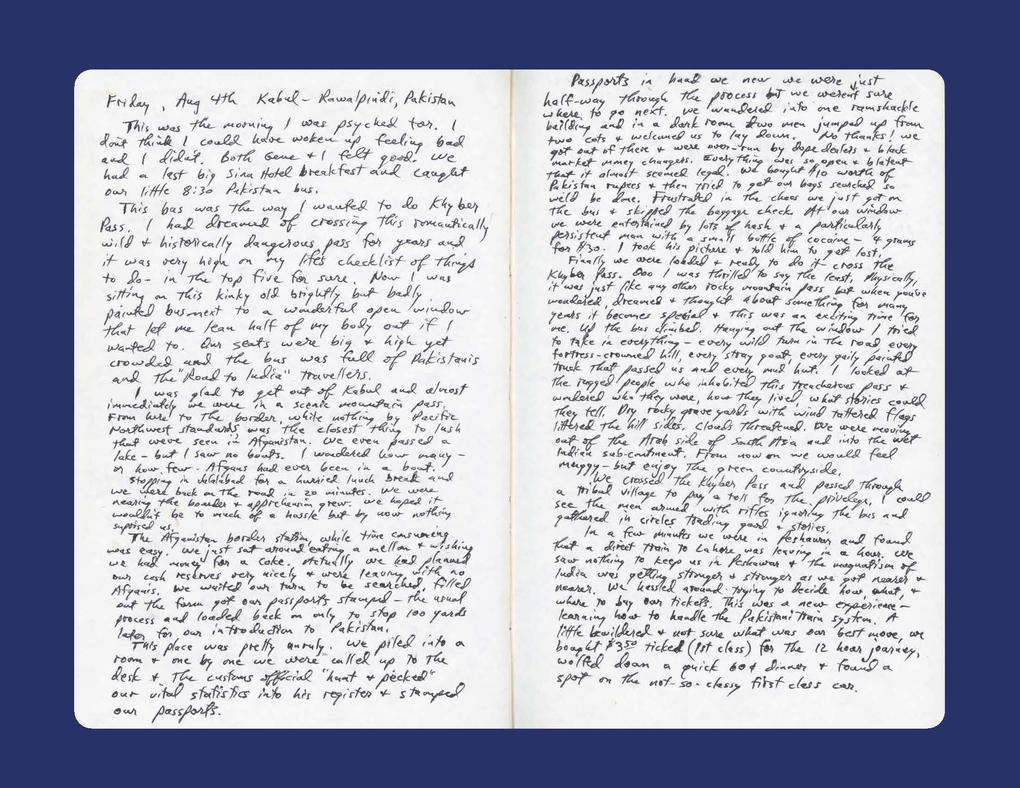 Friday, Aug 4th Kabul - Rawalpindi, Pakistan
This was the morning I was psyched for. I
don't think I could have woken up feeling bad
and I didn't. Both Gene & I felt good. We
had a last big Sina Hotel breakfast and caught
our little 8:30 Pakistan bus.
This bus was the way I wanted to do Khyber
Pass. I had dreamed of crossing this romantically
wild & historically dangerous pass for years and
it was very high on my life's checklist of things
to do - in the top five for sure. Now I was
sitting on this kinky old brightly but badly
painted bus next to a wonderful open window
that let me lean half of my body out if I
wanted to. Our seats were big & high yet
crowded and the bus was full of Pakistanis
and the "Road to India" travellers.
I was glad to get out of Kabul and almost
immediately we were in a scenic mountain pass.
From here to the border, while nothing by Pacific
Northwest standards was the closest thing to lush
that we've seen in Afganistan. We even passed a
lake - but I saw no boats. I wondered how many -
or how few - Afgans had ever been in a boat.
Stopping in Jalalabad for a hurried lunch break and
we were back on the road in 20 minutes. We were
nearing the border & apprehension grew. We hoped it
wouldn't be to much of a hassle but by now nothing
suprised us.
The Afganistan border station, while time consuming
was easy. We just sat around eating a mellon & wishing
we had money for a coke. Actually we had planned
our cash reserves very nicely & were leaving with no
Afganis. We waited our turn to be searched, filled
out the form got our passports stamped - the usual
process and loaded back on only to stop 100 yards
later for our introduction to Pakistan.
This place was pretty unruly. We piled into a
room & one by one we were called up to the
desk & the customs official "hunt & pecked"
our vital statistics into his register & stamped
our passports.
Passports in hand we new we were just
half-way through the process but we weren't sure
where to go next. We wandered into one ramshackle
building and in a dark room two men jumped up from
two cots & welcomed us to lay down. No thanks! We
got out of there & were over-run by dope dealers & black
market money changers. Everything was so open & blatent
that it almost seemed legal. We bought $10 worth of
Pakistan rupees & then tried to get our bags searched so
we'd be done. Frustrated in the chaos we just got on
the bus & skipped the baggage check. At our window
we were entertained by lots of hash & a particularly
persistent man with a small bottle of cocaine - 4 grams
for $30. I took his picture & told him to get lost.
Finally we were loaded & ready to do it cross the
Khyber Pass. Ooo I was thrilled to say the least. Physically,
it was just like any other rocky mountain pass but when you've
wondered, dreamed & thought about something for many
years it becomes special & this was an exciting time for
me. Up the bus climbed. Hanging out the window I tried
to take in everything - every wild turn in the road every
fortress-crowned hill, every stray goat, every gaily painted
truck that passed us and every mud hut. I looked at
the rugged people who inhabited this treacherous pass &
wondered who they were, how they lived, what stories could
they tell. Dry rocky graveyards with wind tattered flags
littered the hill sides. Clouds threatened. We were moving
out of the Arab side of South Asia and into the wet
Indian sub-continent. From now on we would feel
muggy - but enjoy the green countryside.
We crossed the Khyber Pass and passed through
a tribal village to pay a toll for the privelege. I could
see the men armed with rifles ignoring the bus and
gathered in circles trading goods & stories.
In a few minutes we were in Peshawar and found
that a direct train to Lahore was leaving in a hour. We
saw nothing to keep us in Peshawar & the magnatism of
India was getting stronger & stronger as we got nearer &
nearer. We hassled around trying to decide how, what, &
where to buy our tickets. This was a new experience -
learning how to handle the Pakistani train system. A
little bewildered & not sure what was our best move, we
bought $3.50 ticked (1st class) for the 12 hour journey,
wolfed down a quick 60¢ dinner & found a
spot on the not-so-classy first class car.